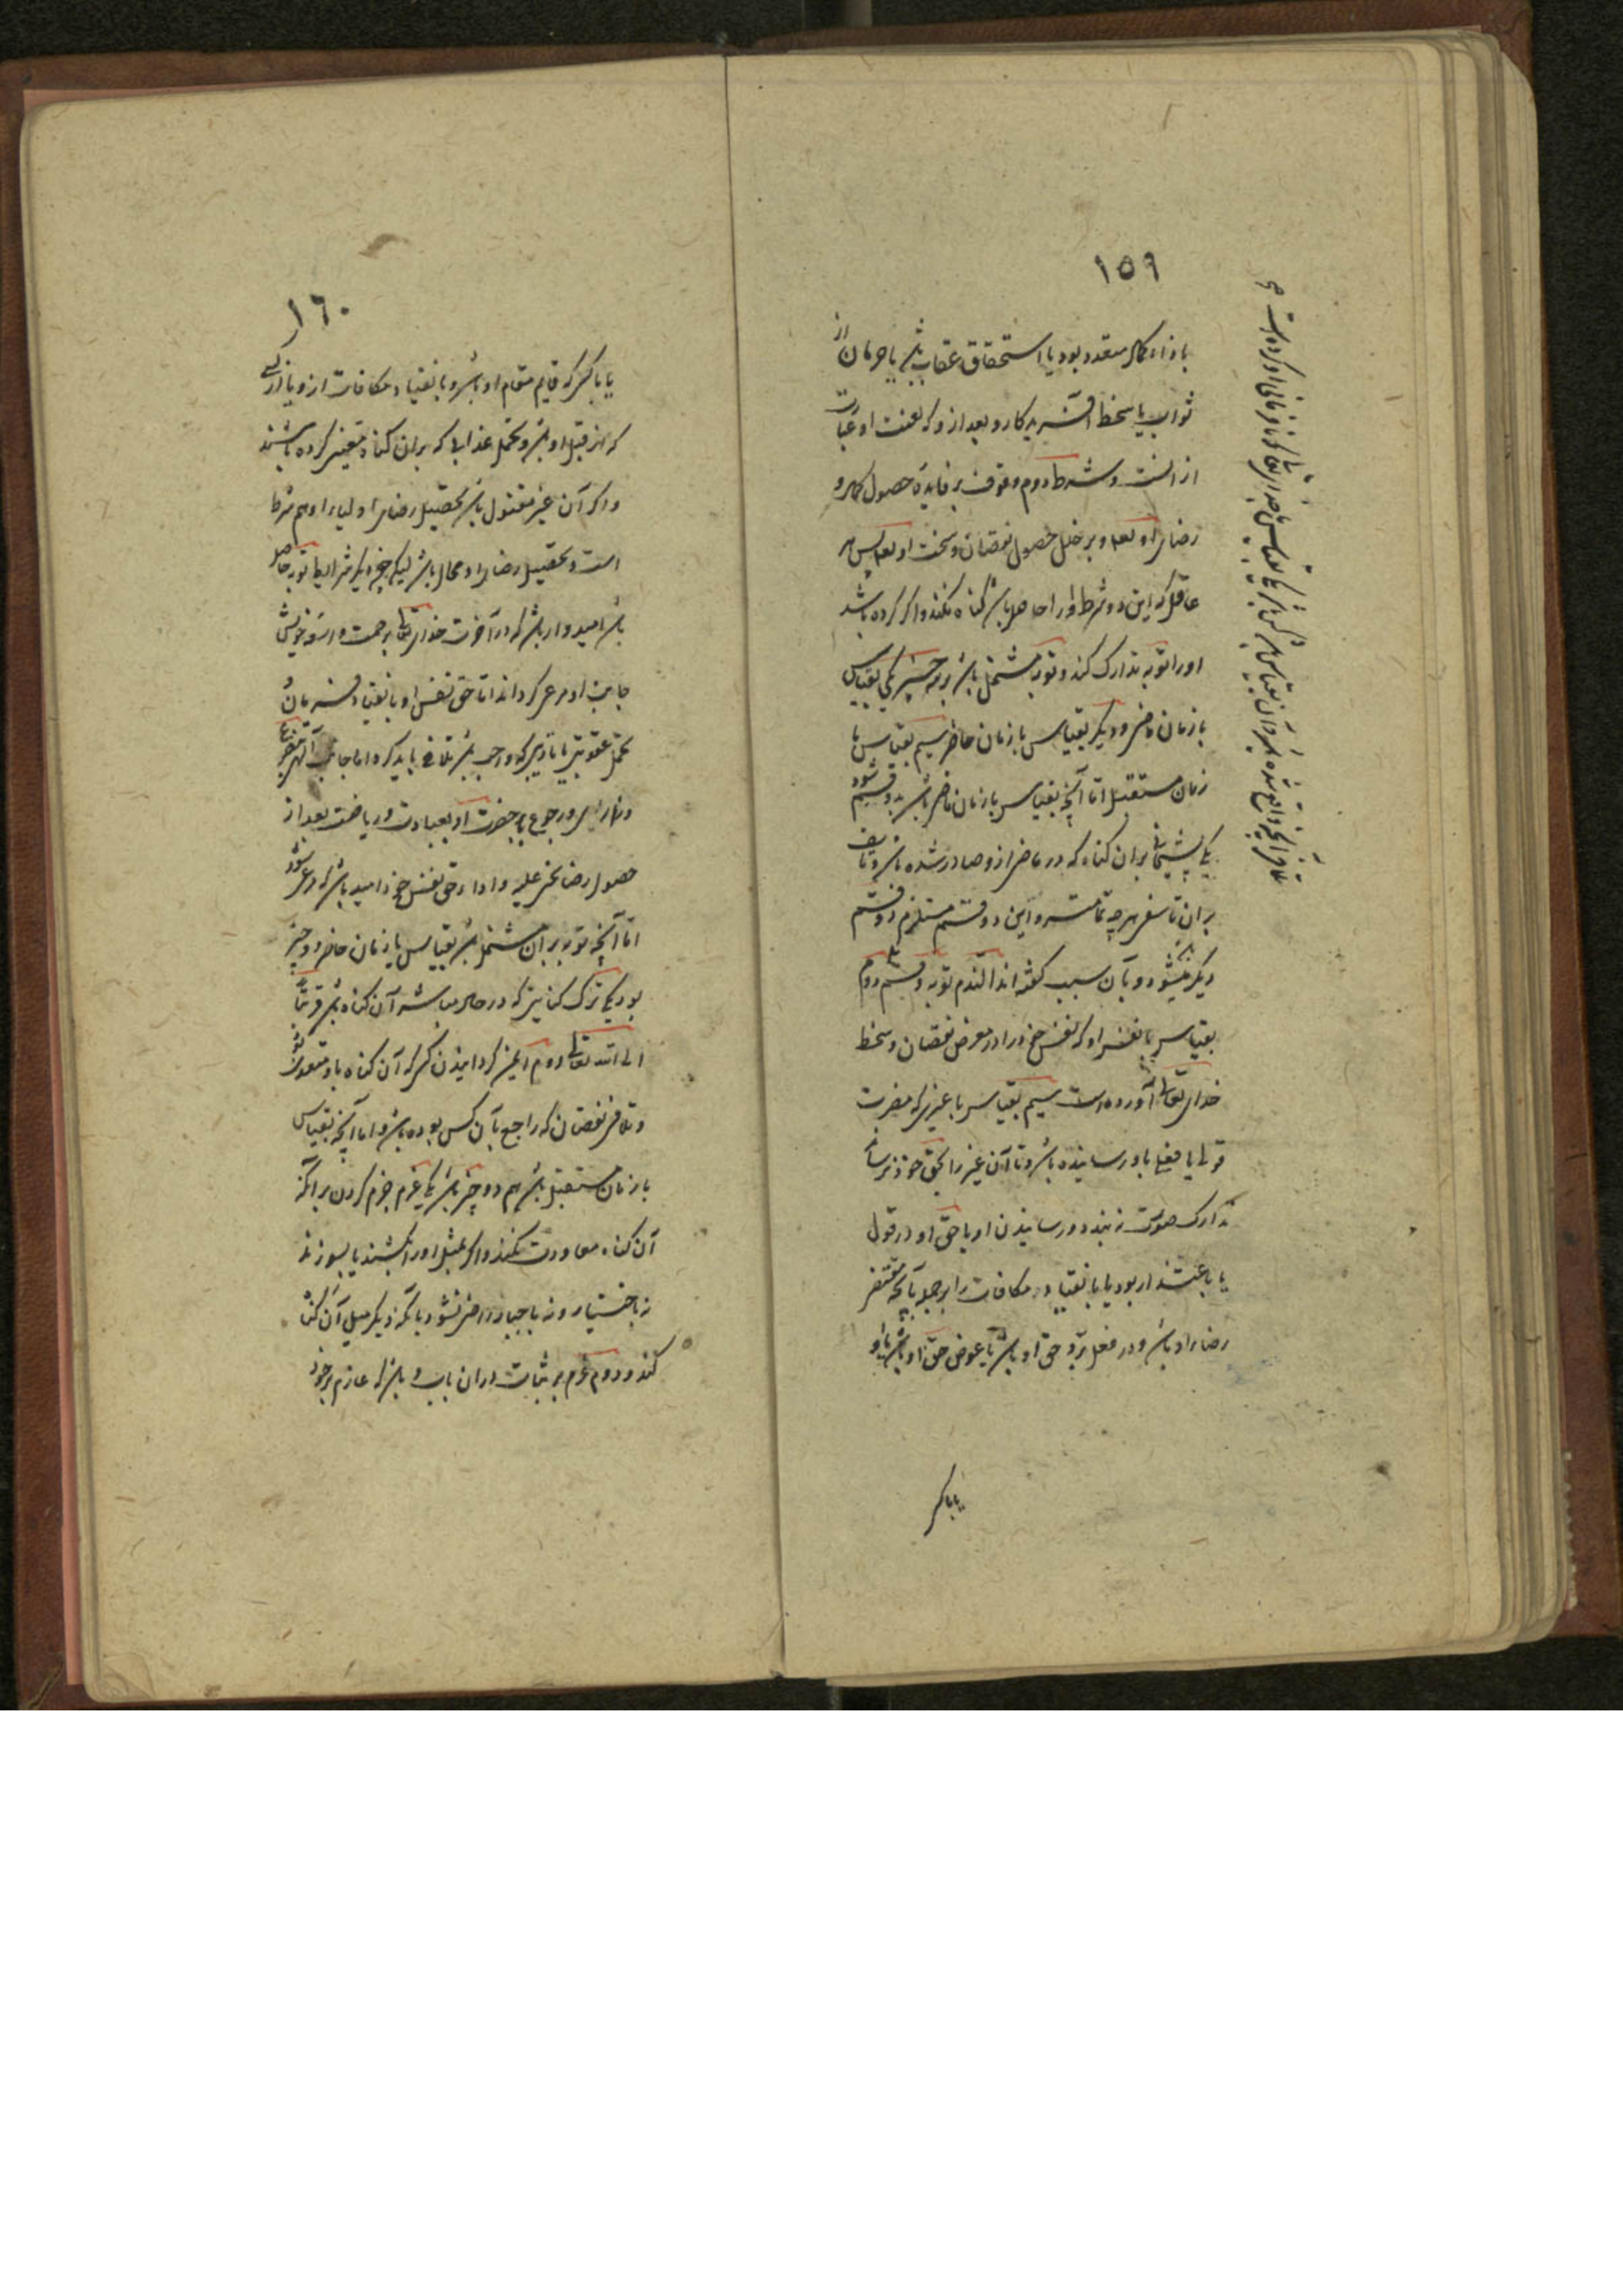 ١٥٩
با زاء کمال معدود بود یا استحقاق عقاب باشد یا حرمان از
ثواب یا سخط آفریدکار و بعد ازو که لعنت او عبارت
از آنست و شرط دوم وقوف بر فایده حصول کمال و
رضای او تعالی و بر خلل حصول نقصان و سخط او تعالی پس هر
عاقل که این دو شرط او را حاصل باشد کناه نکند و اکر کرده باشد
او را توبه تدارک کند و توبه مشتمل باشد بر سه چیز یکی بقیاس
با زمان ماضی و دیکر بقیاس با زمان حاضر سیم بقیاس با
زمان مستقبل اما آنچه بقیاس با زمان ماضی باشد بدو قسم شود
یکی پشیمانی بر آن کناه که در ماضی ازو صادر شده باشد و تاسف
بر آن تاسفی هر چه تمامتر و این دو قسم مستلزم دو قسم
دیکر میشود و بآن سبب کفته اند الندم توبه و قسم دوم
بقیاس با نفس او که نفس خود را در معرض نقصان و سخط
خدای تعالی آورده است سیم بقیاس با غیری که مضرت
قولی یا فعلی باو رسانیده باشد و تا آن غیر را بحق خود نرساند
تدارک صورت نبندد و رسانیدن او با حق او در قول
یا باعتذار بود یا بانقیاد مکافات را بر جمله بآنچه مقتضی
رضاء او باشد و در فعل برد حق او باشد یا عوض حق او باشد باو
یا با کسی
تلافی آنچه واقع شده باشد و آن بقیاس با سه کس باشد یکی بقیاس با خدای تعالی که نافرمانی او کرده است
١٦٠
یا با کسی که قایم مقام او باشد و بانقیاد مکافات ازو یا از کسی
که از قبل او باشد و تحمل عذابی که بر آن کناه تعیین کرده باشند
و اکر آن غیر مقتول باشد تحصیل رضای اولیاء او هم شرط
است و تحصیل رضاء او محال باشد لیکن چون دیکر شرایط توبه حاصل
باشد امیدوار باشد که در آخرت خدای تعالی برحمت واسعه خویش
جانب او مرعی کرداند اما حق نفس او بانقیاد فرمان
تحمل عقوبتی یا تادیبی که واجب باشد تلافی باید کرد اما جانب الهی بتضرع
و زاری و رجوع با حضرت او بعبادت و ریاضت بعد از
حصول رضاء مجنی علیه و اداء حق نفس خود امید باشد که مرعی شود
اما آنچه توبه بر آن مشتمل باشد بقیاس با زمان حاضر دو چیز
بود یکی ترک کناهی که در حال مباشر آن کناه باشد قربة
الی الله تعالی دوم ایمن کردانیدن کسی که آن کناه باو متعدی شود
و تلافی نقصان که راجع بآن کس بوده باشد و اما آنچه بقیاس
با زمان مستقبل باشد هم دو چیز باشد یکی عزم جزم کردن بر آنکه
آن کناه معاودت نکند و اکر بمثل او را بکشند یا بسوزند
نه باختیار و نه باجبار راضی نشود بآنکه دیکر مثل آن کناه
کند و دوم عزم بر ثبات در آن باب و باشد که عازم بر خود